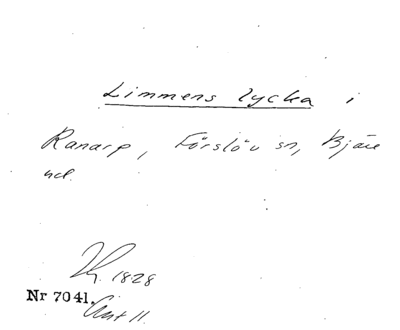 Limmens lycka i
Ranarp, Förslöv sn, Bjäre
hd.
1828
Nr 7041.